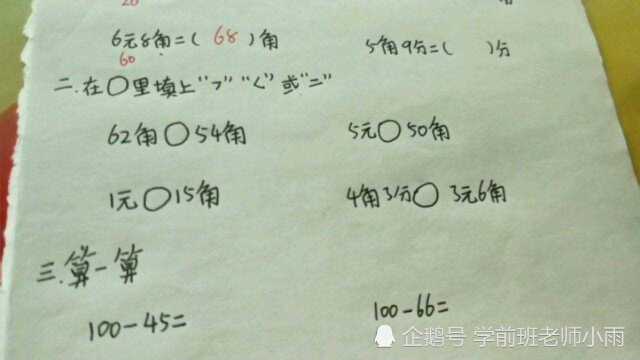 20
6元8角=( 68 )角 5角9分=( )分
60
二.在○里填上">""<"或"="
62角○54角 5元○50角
1元○15角 4角3分○ 3元6角
三.算一算
100-45= 100-66=
企鹅号 学前班老师小雨